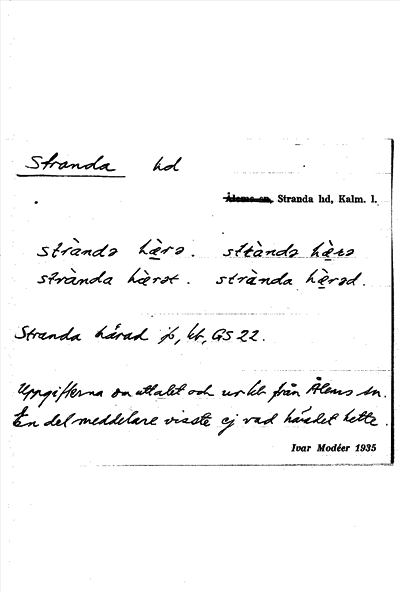 Stranda hd
Ålems sn, Stranda hd, Kalm. l.
stràndə hæ̀rə. stràndə hæ̀rə
strànda hæ̀rət. strànda hæ̀rəd.
Stranda härad jb, kb, GS 22.
Uppgifterna om uttalet och ur kb från Ålems sn.
En del meddelare visste ej vad häradet hette.
Ivar Modéer 1935